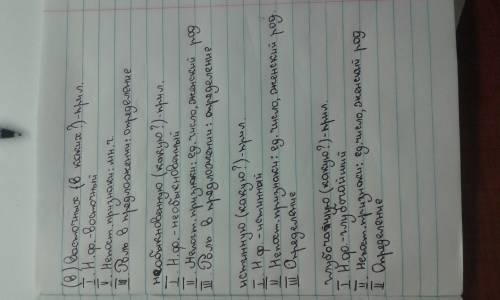 (в) восточных (в каких?)-прил.
I Н.ф.-восточный
II Непост.признаки: мн.ч.
III Роль в предложении: определение
необыкновенную (какую?)-прил.
I Н.ф.-необыкновенный
II Непост.признаки: ед.число, женский род
III Роль в предложении: определение
истинную (какую?)-прил
I Н.ф.-истинный
II Непост.признаки: ед.число, женский род.
III Определение
глубочайшую (какую?)-прил
I Н.ф-глубочайший
II Непост.признаки: ед.число, женский род
III Определение